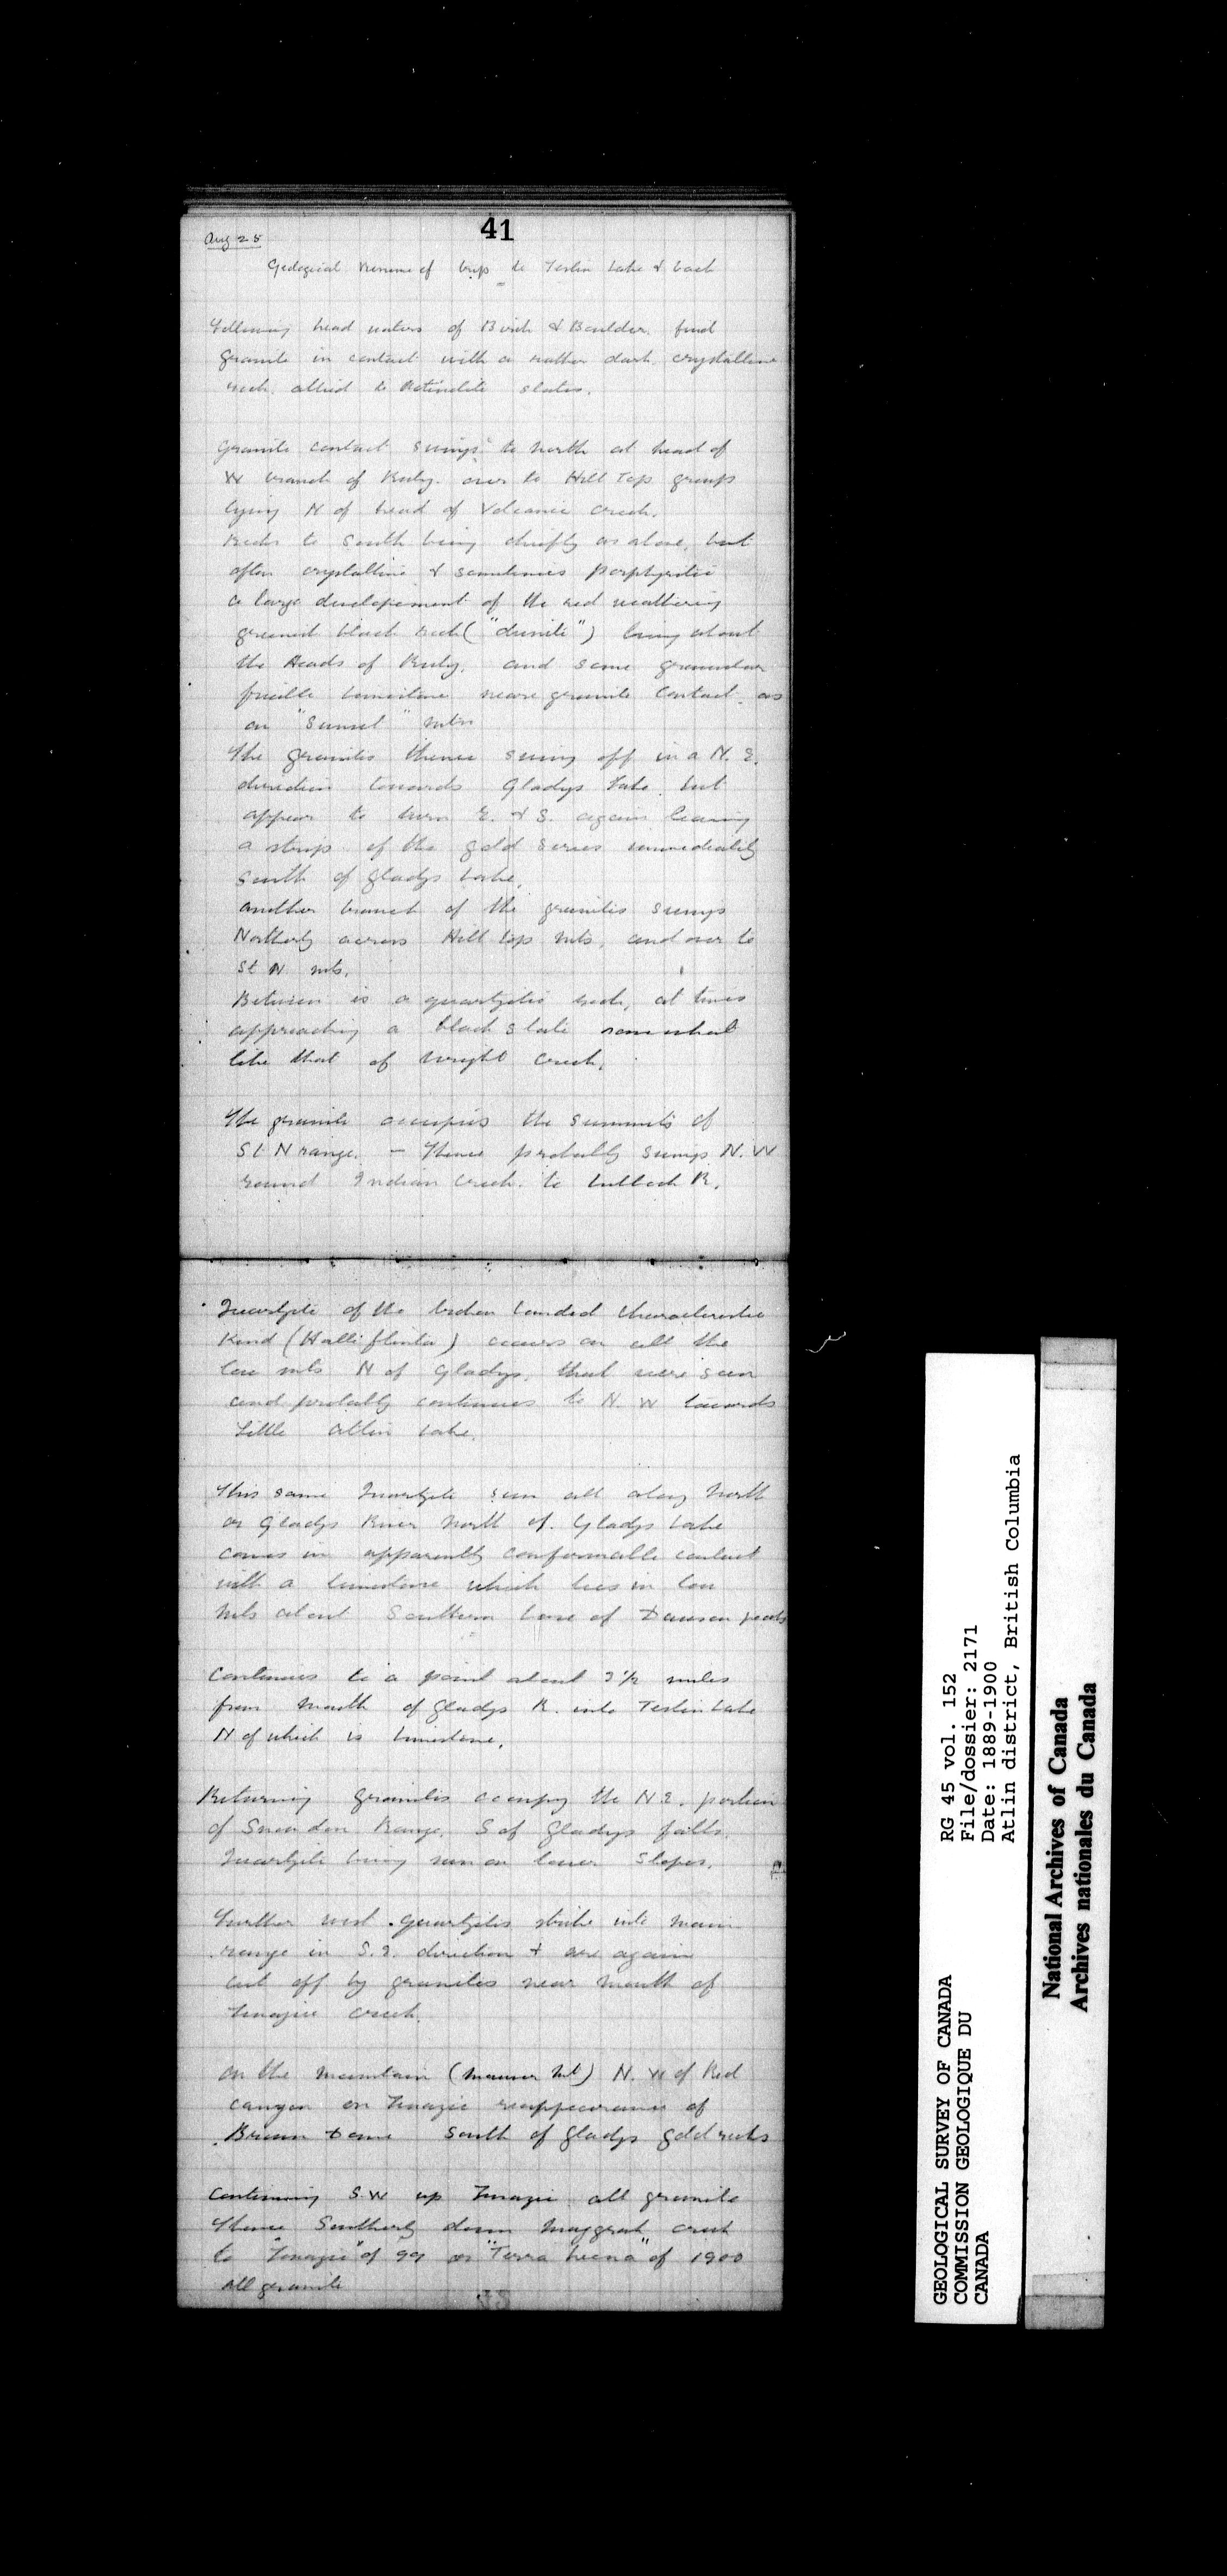 41
Aug 25
Geological Resume of trip to Teslin Lake & back
Following head waters of Birch & Boulder find
granite in contact with a rather dark crystalline
rock allied to Actinolite slates.
Granite contact swings to North at head of
W branch of Ruby. over to Hill Top group
lying N of head of Volcanic creek.
Rocks to South being chiefly as above, but
often crystalline & sometimes porphyritic
a large developement of the red weathering
greenish black rock ("dunite") being about
the Heads of Ruby. and some granular
friable limestone near granite contact as
on "Sunset" mtn
The granites thence swing off in a N. E.
direction towards Gladys Lake. but
appear to turn E. & S. again leaving
a strip of the gold series immediately
South of Gladys Lake.
another branch of the granites swings
Northerly across Hill top mts, and over to
St N mts.
Between is a quartzitic rock, at times
approaching a black slate somewhat
like that of Wright Creek.
The granite occupies the summits of
St N range. - Thence probably swings N. W
round Indian Creek. to Lubbock R.
Quartzite of the broken banded characteristic
Kind (Halliflinta) occurs on all the
low mts N of Gladys. that were seen
and probably continues to N. W towards
Little Atlin Lake.
This same Quartzite seen all along North
or Gladys River North of. Gladys Lake
comes in apparently conformable contact
with a limestone which lies in low
hills about Southern base of Dawson peaks
Continues to a point about 3 1/2 miles
from mouth of Gladys R. into Teslin Lake
N of which is limestone.
Returning granites occupy the N.E. portion
of Snowdon Range. S of Gladys falls.
Quartzite being seen on lower slopes.
Further west quartzites strike into main
range in S.E. direction & are again
cut off by granites near mouth of
creek.
On the mountain ( Mt) N. W of Red
canyon on reappearance of
Brown Dome South of Gladys gold rocks
Continuing S.W up all granite
Thence Southerly down creek
to " " of 99 or "Terra " of 1900
All granite
GEOLOGICAL SURVEY OF CANADA
COMMISSION GEOLOGIQUE DU
CANADA
RG 45 vol. 152
File/dossier: 2171
Date: 1889-1900
Atlin district, British Columbia
National Archives of Canada
Archives nationales du Canada